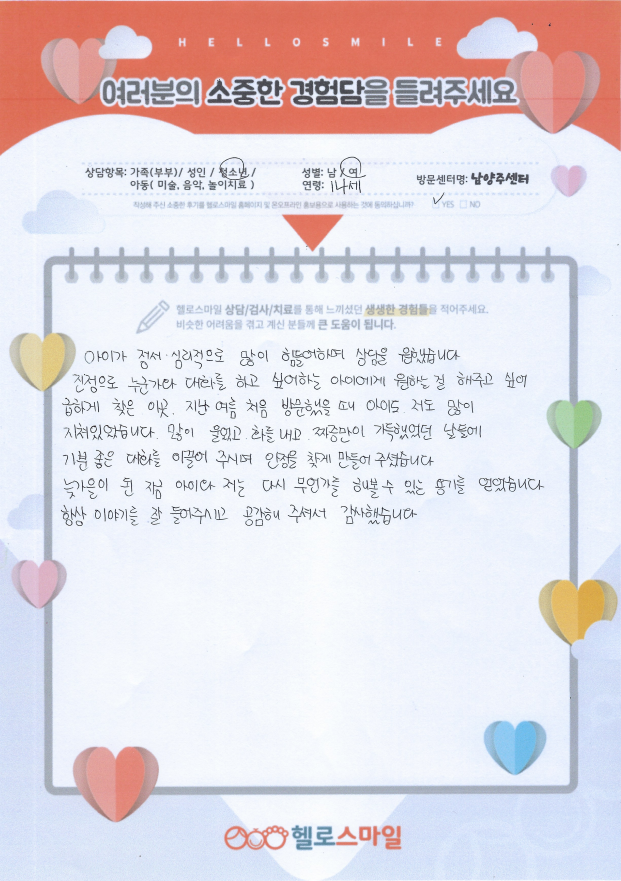 HELLOSMILE
여러분의 소중한 경험담을 들려주세요
상담항목: 가족(부부)/ 성인 / 청소년 /
아동( 미술, 음악, 놀이치료 )
성별: 남 / 여
연령: 14세
방문센터명: 남양주센터
작성해 주신 소중한 후기를 헬로스마일 홈페이지 및 온오프라인 홍보용으로 사용하는 것에 동의하십니까? ✓ □ YES □ NO
헬로스마일 상담/검사/치료를 통해 느끼셨던 생생한 경험들을 적어주세요.
비슷한 어려움을 겪고 계신 분들께 큰 도움이 됩니다.
아이가 정서·심리적으로 많이 힘들어하며 상담을 원했습니다
진정으로 누군가와 대화를 하고 싶어하는 아이에게 원하는 걸 해주고 싶어
급하게 찾은 이곳. 지난 여름 처음 방문했을 때 아이도. 저도 많이
지쳐있었습니다. 많이 울었고. 화를 내고. 짜증만이 가득했었던 날들에
기분 좋은 대화를 이끌어 주시며 안정을 찾게 만들어 주셨습니다
늦가을이 된 지금 아이와 저는 다시 무언가를 해볼 수 있는 용기를 얻었습니다
항상 이야기를 잘 들어주시고 공감해 주셔서 감사했습니다
헬로스마일